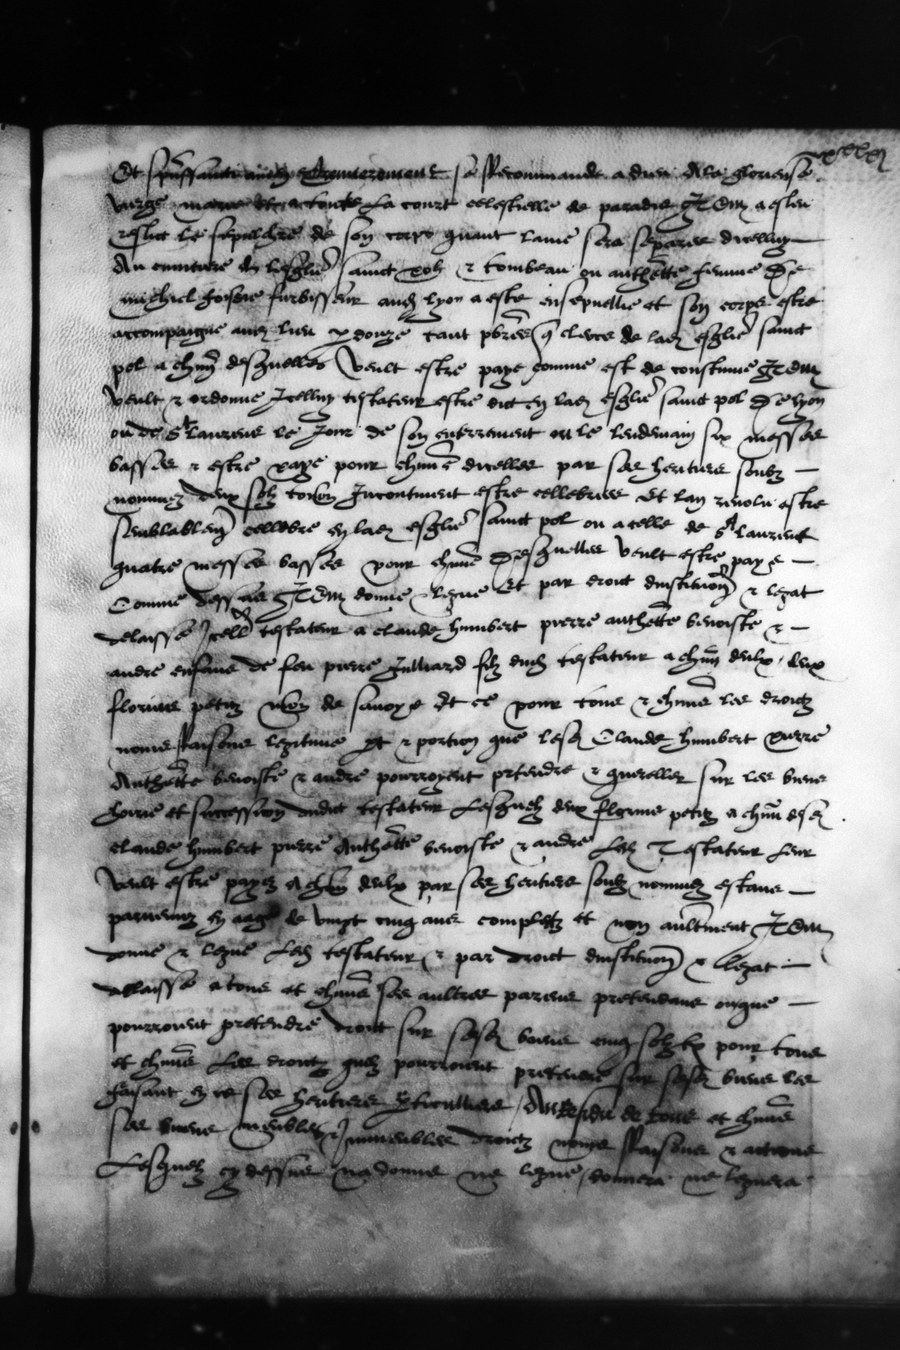 Et se Recommande a dieu a la glorieuse
vierge marie et a toute La court celestielle de paradis Item a esleu
eslit Le sepulchre de son corps quant lame sera separee dicelluy
Au cymitiere de lesglise sainct pol & tombeau ou anthoinette femme de
michiel forbisseur aud lyon a este ensepvellie et son corps estre
accompaigne aud lieu par douze tant pbres que clercs de lad esglise sainct
pol a chun desquelles Veult estre paye comme est de coustume Item
Veult & ordonne Icelluy testateur estre dict en lad esglise sainct pol de lyon
ou de St Laurens le Jour de son enterrement ou le lendemain six messes
basses & estre paye pour chune dicelles par ses heritiers soubz
nommez deux solz torn Incontinent estre cellebrees Et lan revolu estre
semblablemt cellebre en lad esglise sainct pol ou a celle de St Laurent
quatre messes basses pour chune desquelles Veult estre paye
Comme dessus Item donne legue Et par droit dinstitution & legat
delaisse Icelluy testateur a claude humbert pierre anthoinette benoiste &
andre enfans de feu pierre Julliard filz dud testateur a chun deulx deux
florins petitz mon de savoye Et ce pour tous & chuns les droitz
noms Raisons legitime pt & portion que lesd Claude humbert pierre
Anthoinette benoiste & andre pourroyent ptendre & quereller sur les biens
hoirie et succession dudict testateur Lesquelz deux florins petitz a chun desd
claude humbert pierre Anthoinette benoiste & andre Led Testateur Leur
Veult estre payez a chun deulx par ses heritiers soubz nommez estans
parvenuz en aage de vingt cinq ans completz et non aultrement Item
donne & legue Led testateur & par droit dinstitution & legat
delaisse a tous et chuns ses aultres parens pretendans ou que
pourroient pretendre droit sur sesd biens cinq solz tz pour tous
et chuns Les droitz quilz pourroient pretendre sur sesd biens les
faisant en ce ses heritiers pticulliers Au Residu de tous et chuns
ses biens meubles & Immeubles droitz noms Raisons & actions
Lesquelz cy dessus na donne ne legue donnera ne leguera